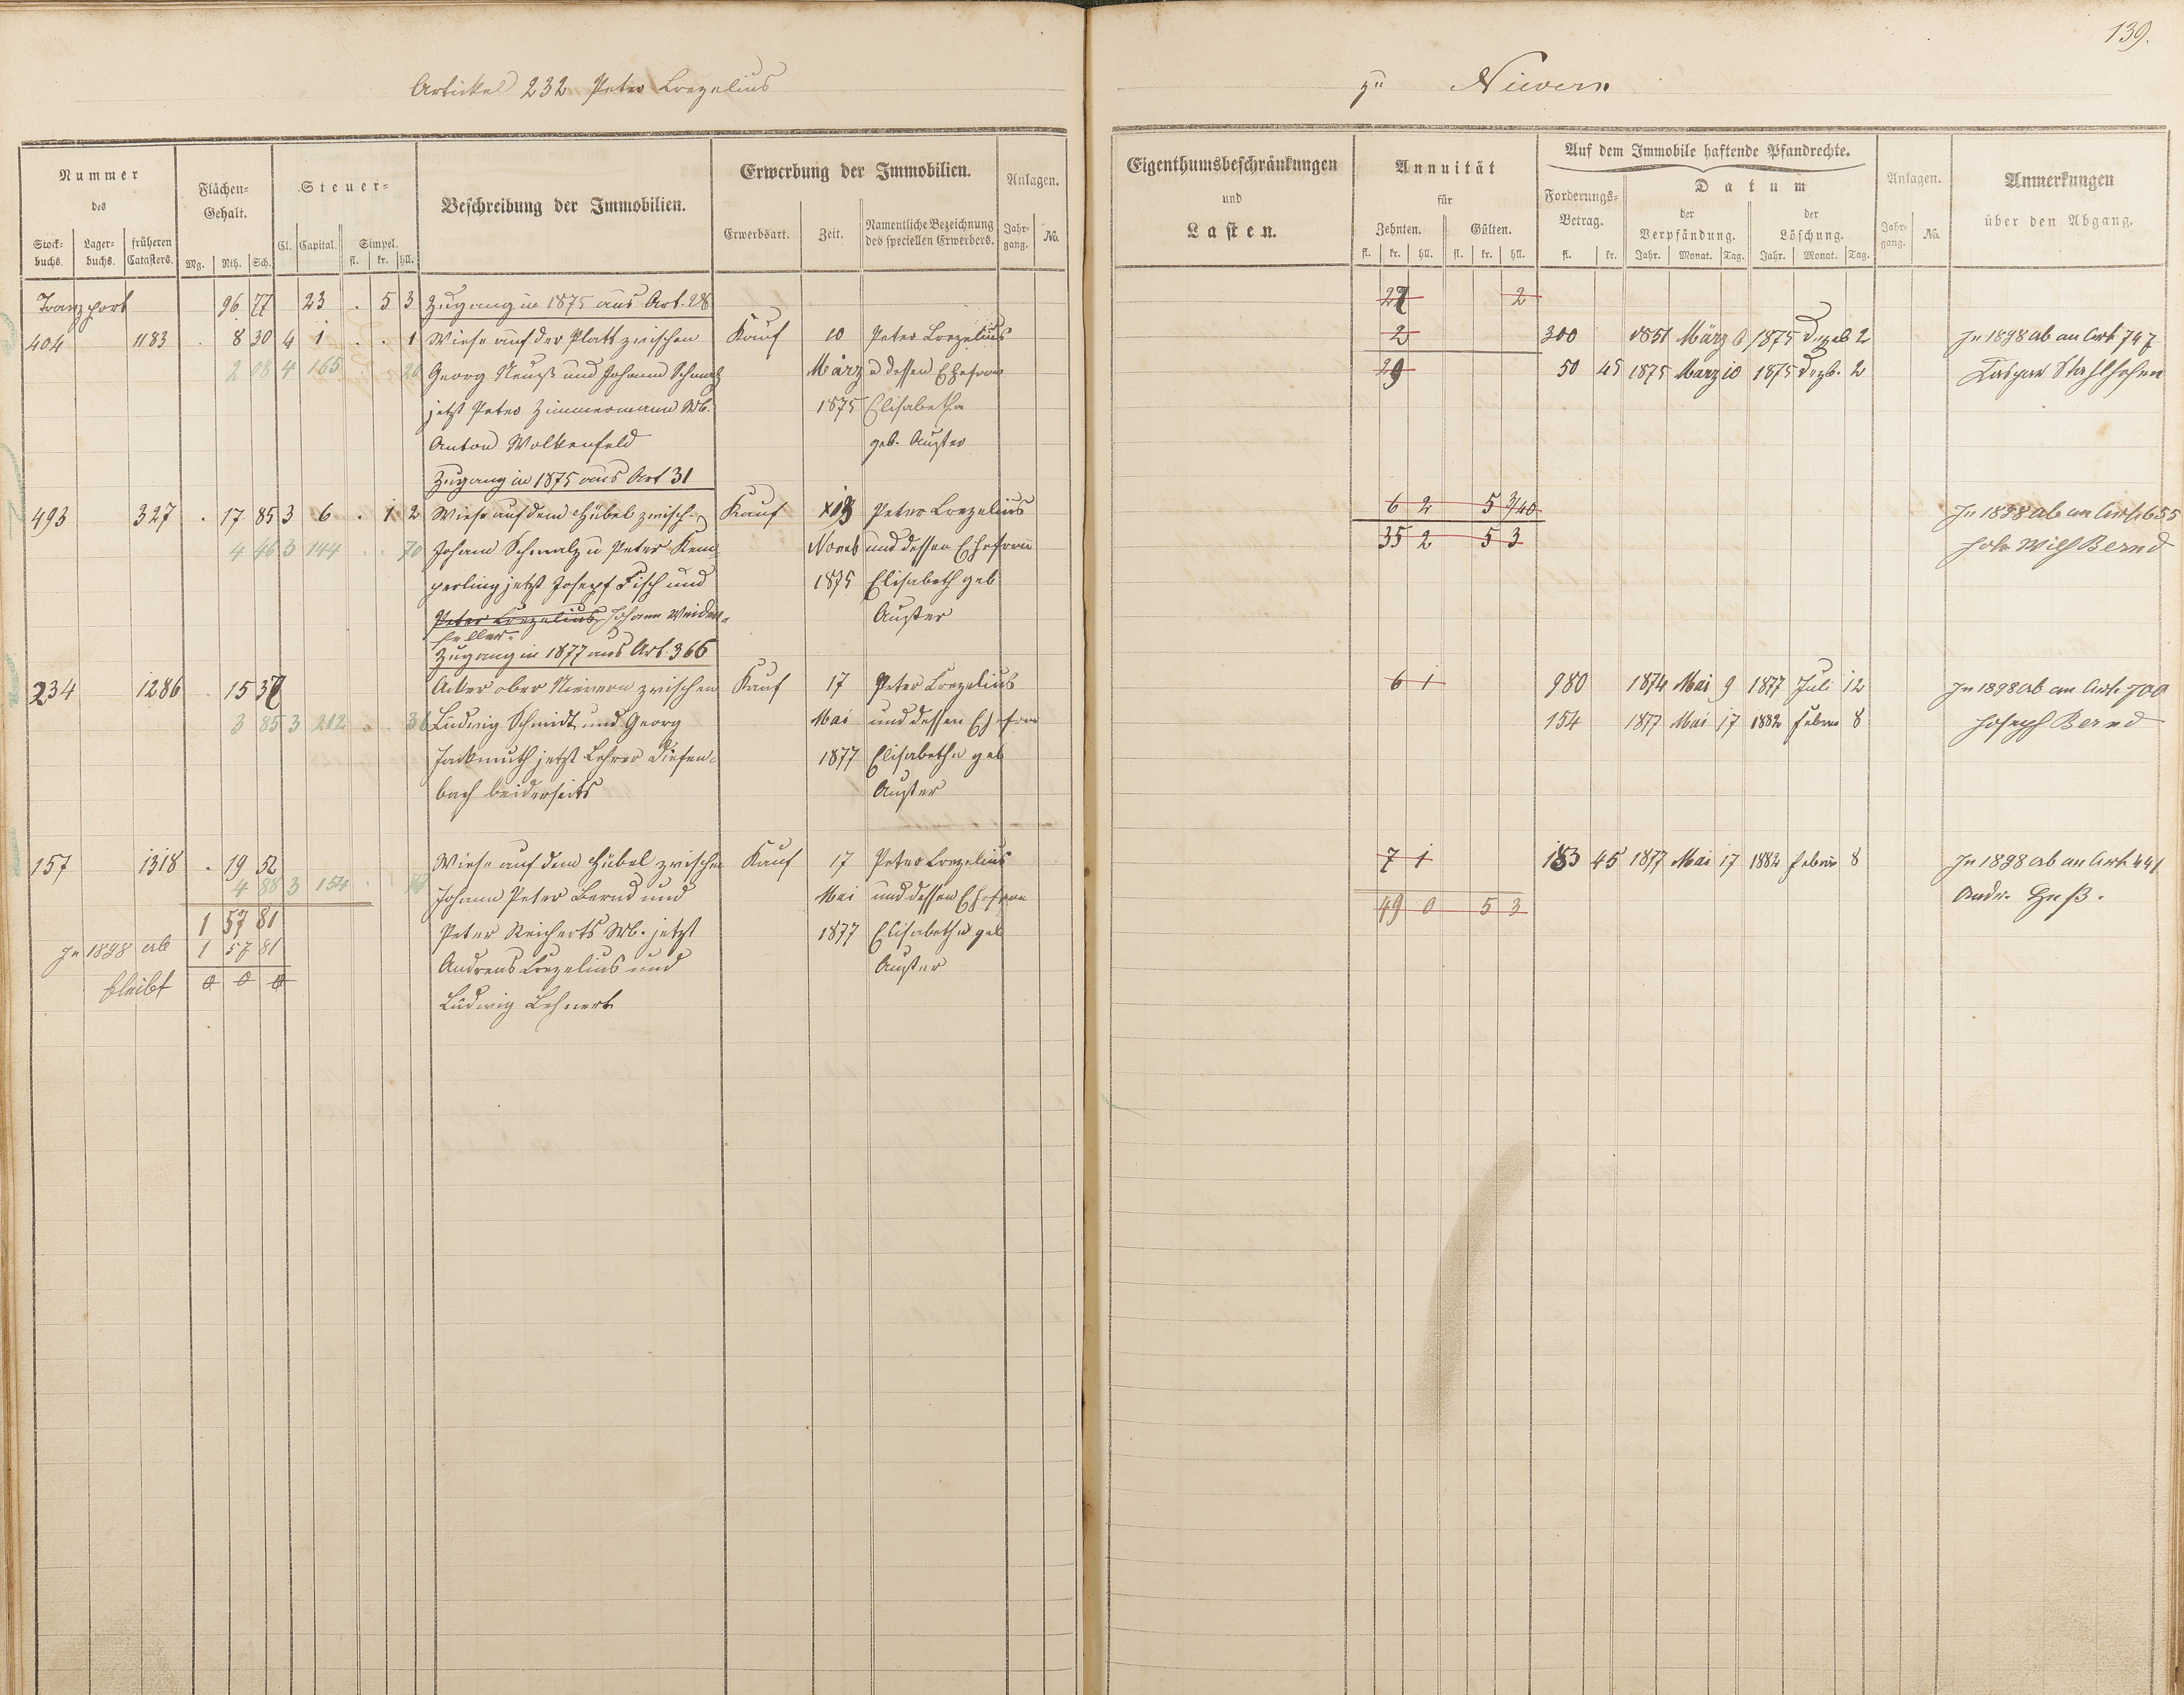 139.
Artickel 232 Peter Lorzelius
zu Nievern
Nummer
des
Stock-
buchs.
Lager-
buchs.
früheren
Catasters.
Flächen-
Gehalt.
Mg. Rth. Sch.
Steuer-
Cl. Capital. Simpel.
fl. kr. hll.
Beschreibung der Immobilien.
Erwerbung der Immobilien.
Erwerbsart. Zeit.
Namentliche Bezeichnung
des speciellen Erwerbers.
Anlagen.
Jahr-
gang.
No.
Eigenthumsbeschränkungen
und
Lasten.
Annuität
für
Zehnten. Gülten.
fl. kr. hll. fl. kr. hll.
Auf dem Immobile haftende Pfandrechte.
Forderungs-
Betrag.
fl. kr.
Datum
der
Verpfändung.
der
Löschung.
Jahr. Monat. Tag. Jahr. Monat. Tag.
Anlagen.
Jahr-
gang.
No.
Anmerkungen
über den Abgang.
Transport 96 77 23 . 5 3 Zugang in 1875 aus Art. 28 2
404 1183 . 8 30 4 1 . . 1 Wiese auf der Platt zwischen Kauf 10 Peter Lorzelius 2 300 1851 März 6 1875 Dezeb 2 In 1898 ab an Art. 747
2 08 4 165 20 Georg Neuß und Johann Schmalz März u dessen Ehefrau 29 50 45 1875 März 10 1875 Dezb. 2 Kaspar Stahlhofen
jetzt Peter Zimmermann Wb. 1875 Elisabetha
Anton Wolkenfeld geb. Auster
Zugang in 1875 aus Art 31
493 327 . 17 85 3 6 . 1 2 Wiese auf dem Hübel zwisch. Kauf Peter Lorzelius 6 2 5 3/40 In 1898 ab an Art. 655
4 46 3 144 . . 70 Johann Schmalz u Peter Kem Noveb und dessen Ehefrau 35 2 5 3 Joh. Wilh Bernd
perling jetzt Josepf Fisch und 1875 Elisabeth geb
Peter Lorzelius Johann Weiden- Auster
heller.
Zugang in 1877 aus Art. 366
234 1286 . 15 37 Acker ober Nievern zwischen Kauf 17 Peter Lorzelius 6 1 980 1874 Mai 9 1877 Juli 12 In 1898 ab an Art. 700
3 85 3 212 . . 36 Ludwig Schmidt und Georg Mai und dessen Ehefrau 154 1877 Mai 17 1882 Febru 8 Joseph Bernd
Fackmuth jetzt Lehrer Diefen- 1877 Elisabetha geb
bach beiderseits Auster
157 1318 . 19 52 Wiese auf dem Hübel zwischen Kauf 17 Peter Lorzelius 7 1 183 45 1877 Mai 17 1882 Febru 8 In 1898 ab an Art. 441
4 88 3 154 Johann Peter Bernd und Mai und dessen Ehefrau 49 0 5 3 Andr. Heß.
1 57 81 Peter Reicherts Wb. jetzt 1877 Elisabetha geb
In 1898 ab 1 57 81 Andreas Lorzelius und Auster
bleibt 0 0 0 Ludwig Lehnert